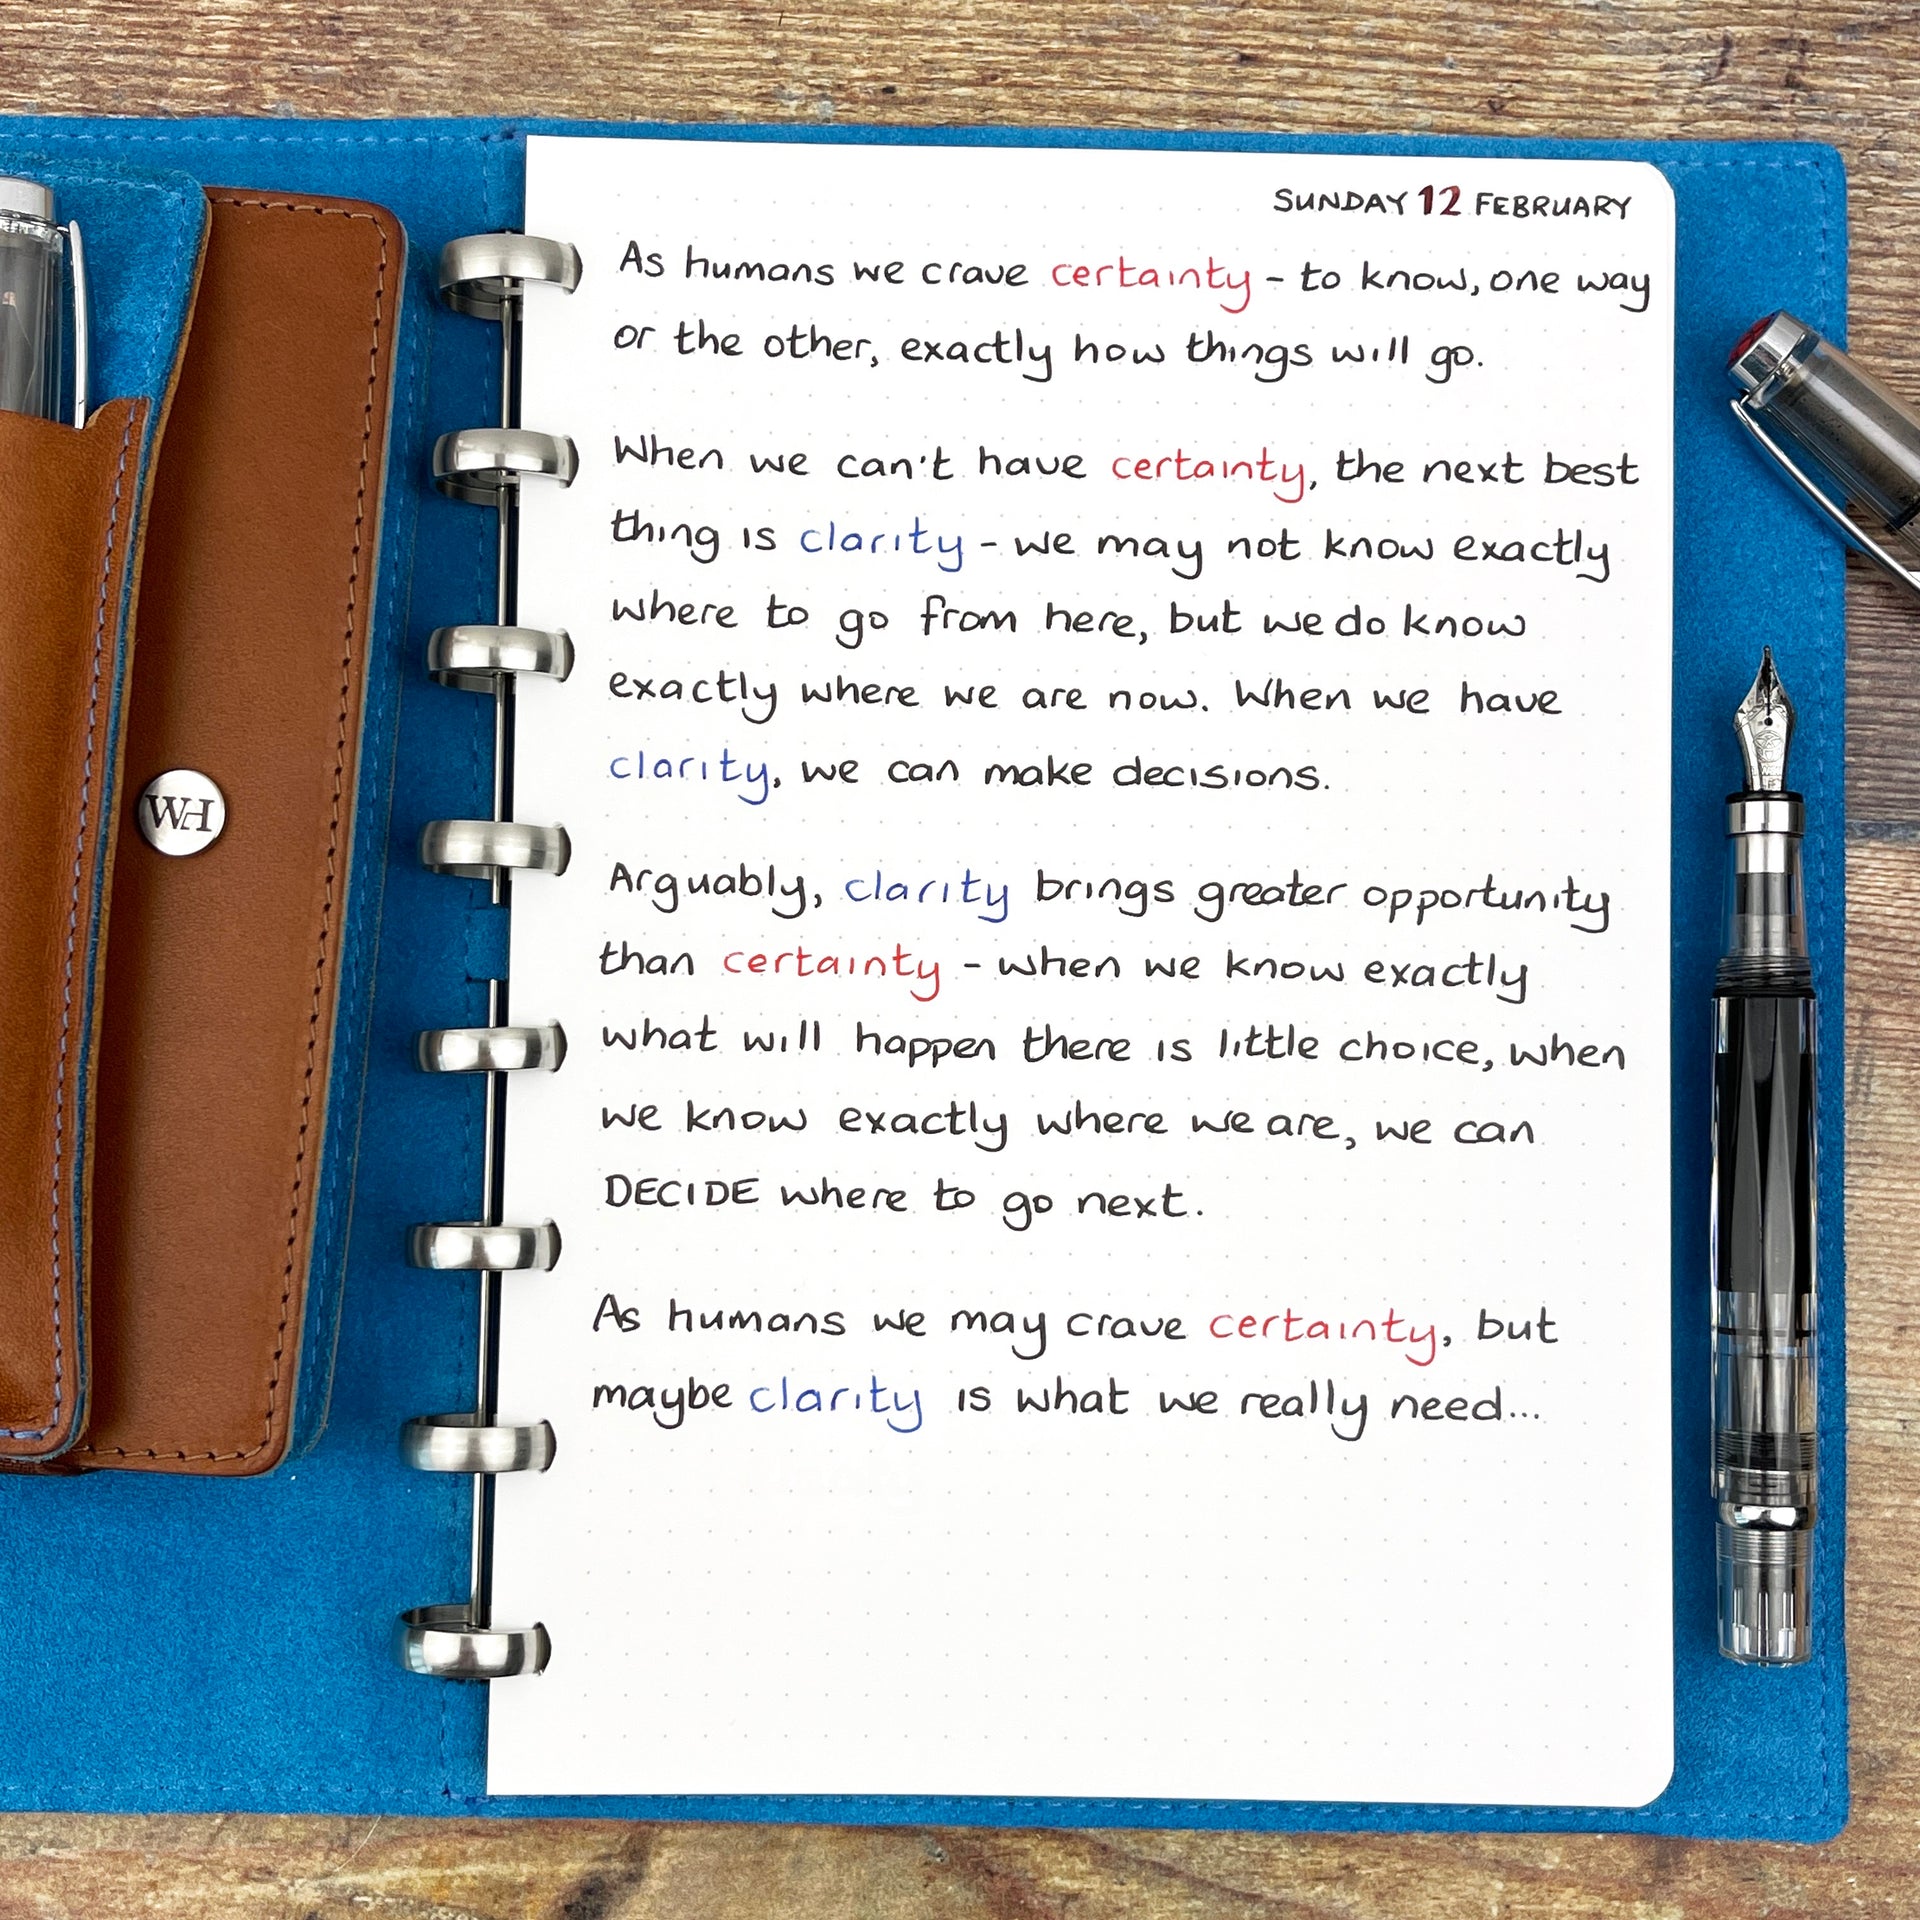 SUNDAY 12 FEBRUARY
As humans we crave certainty - to know, one way
or the other, exactly how things will go.
When we can't have certainty, the next best
thing is clarity - we may not know exactly
where to go from here, but we do know
exactly where we are now. When we have
clarity, we can make decisions.
Arguably, clarity brings greater opportunity
than certainty - when we know exactly
what will happen there is little choice, when
we know exactly where we are, we can
DECIDE where to go next.
As humans we may crave certainty, but
maybe clarity is what we really need...
WH